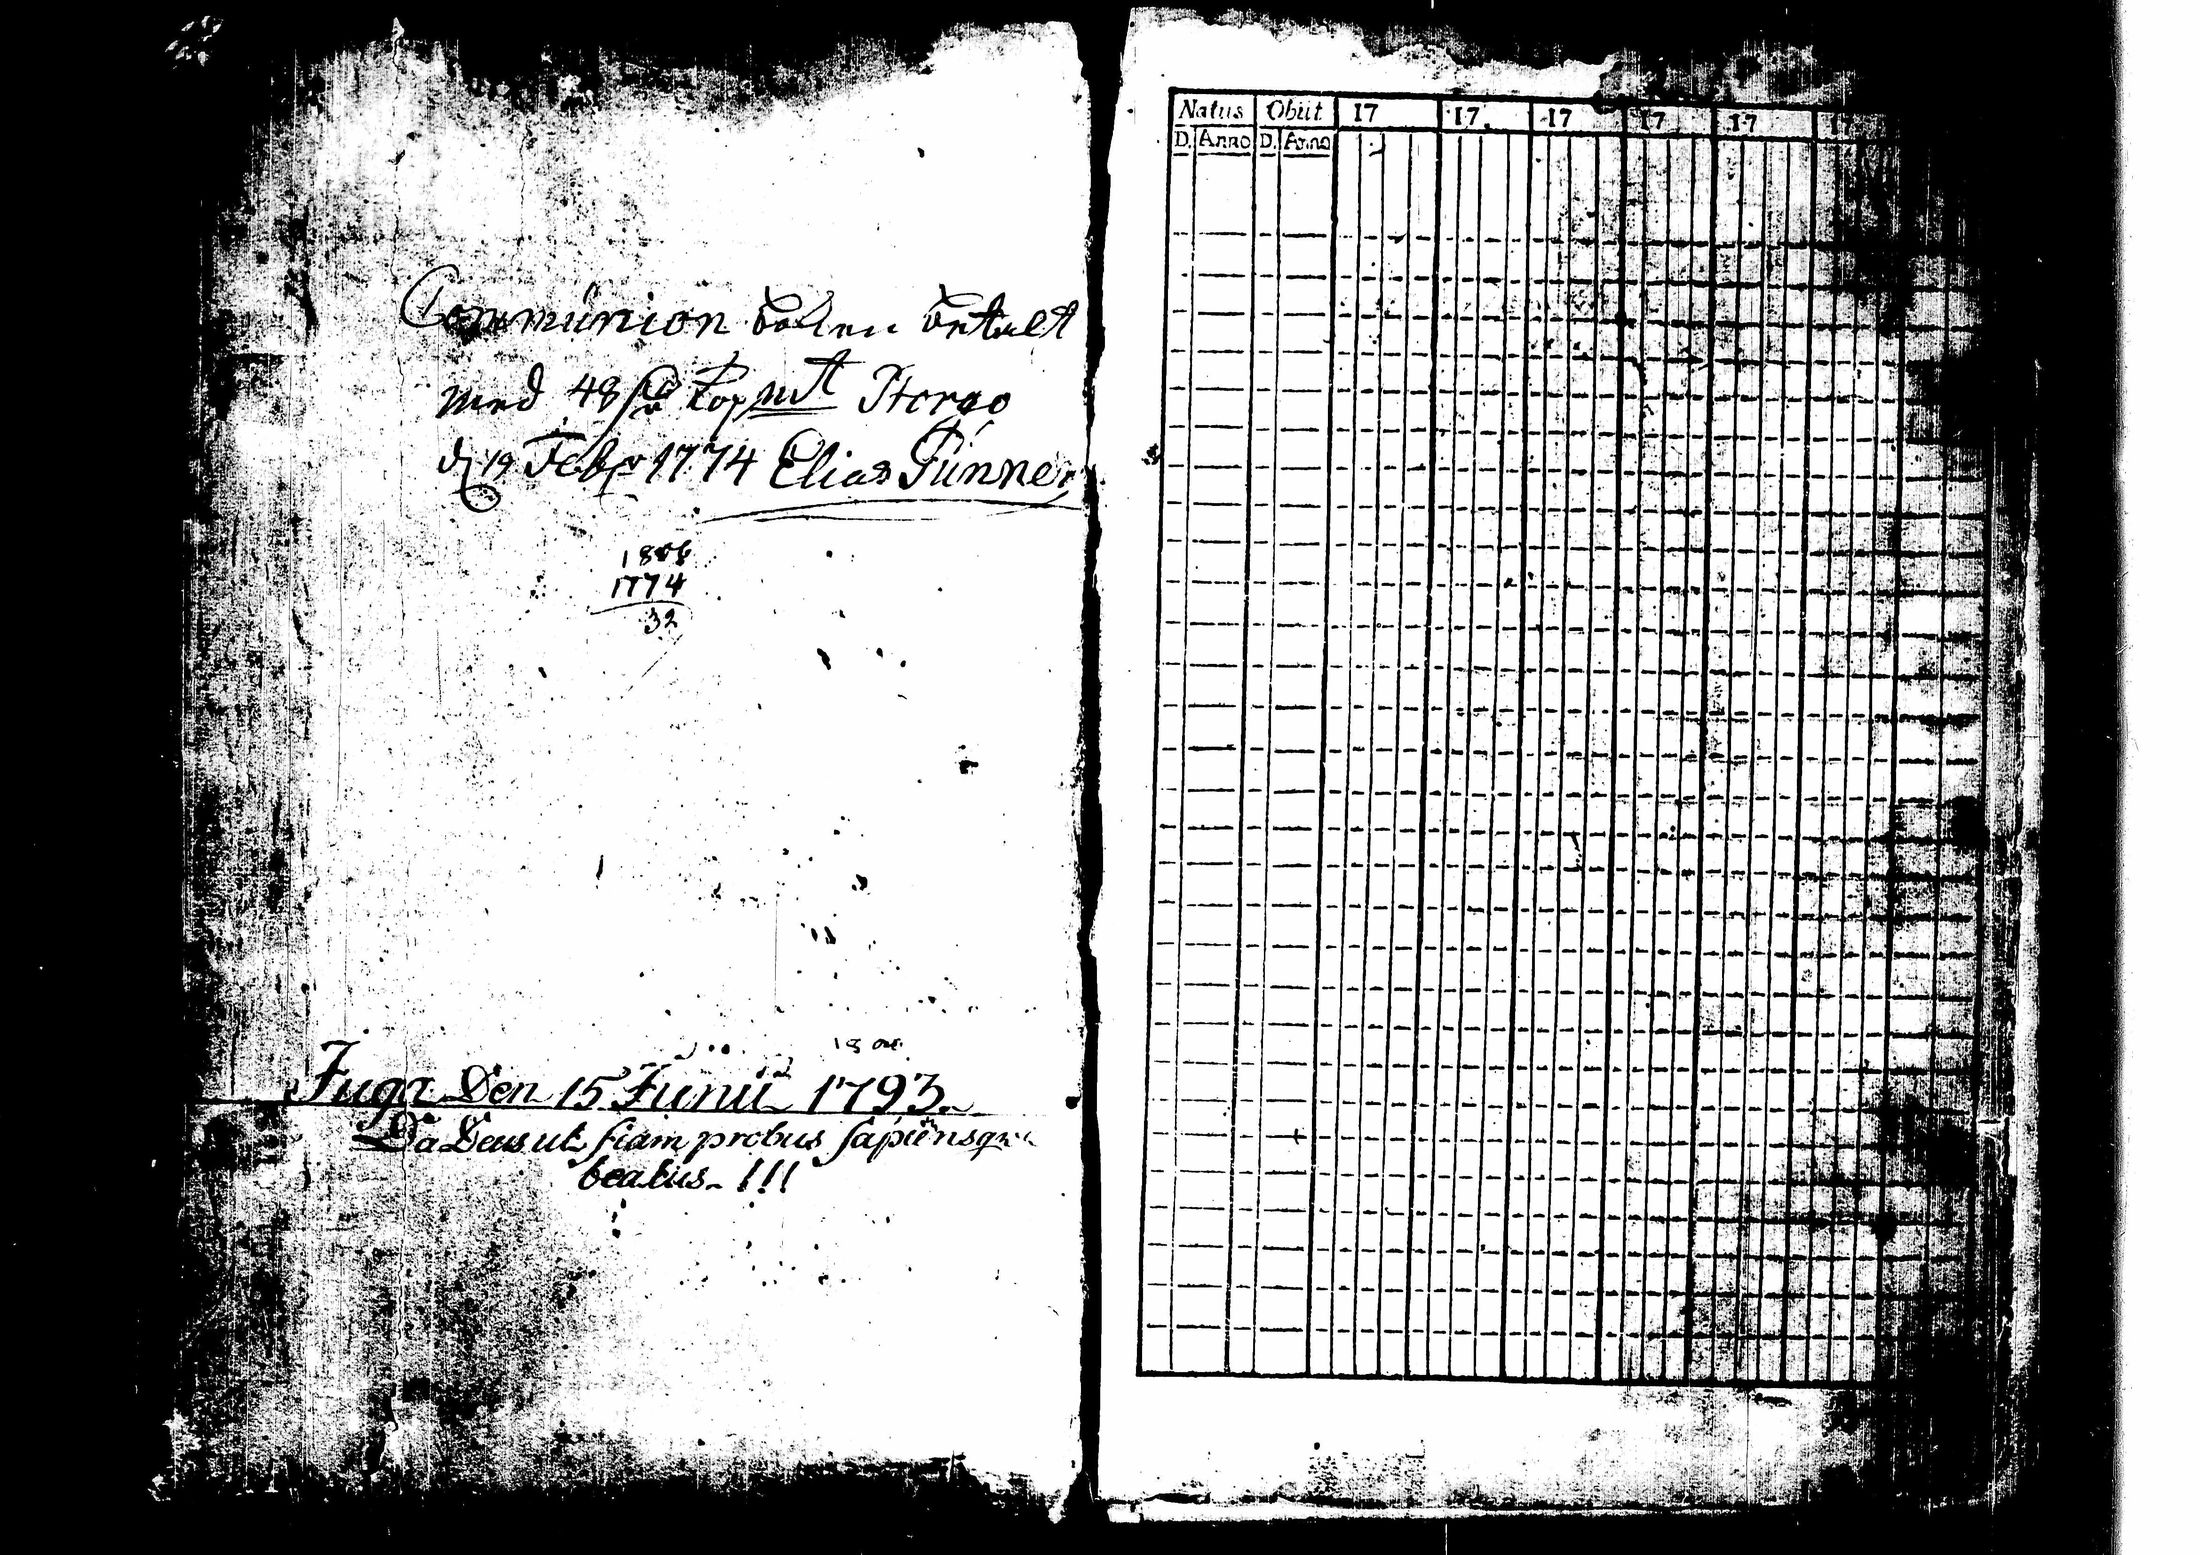 Communion boken betalt
med 48
d 19 Febr 1774 Elias
1806
1774
32
Den 15 Junii 1793.
Da Deus ut fiam probus sapiens
beatus. !!!
Natus Obiit 17 17 17 17 17 17
D. Anno D. Anno